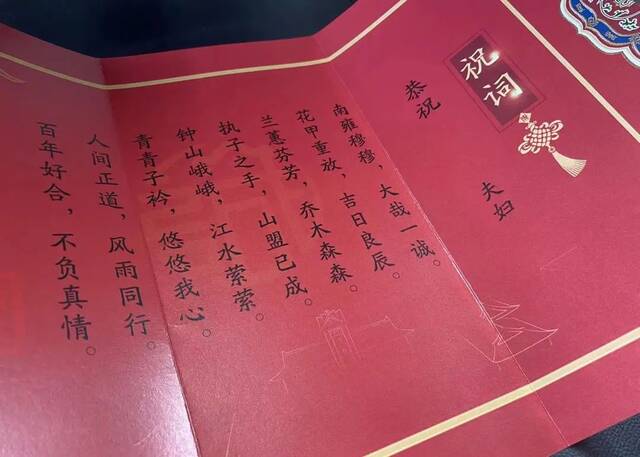 祝词
恭祝 夫妇
南雍穆穆，大哉一诚。
花甲重放，吉日良辰。
兰蕙芬芳，乔木森森。
执子之手，山盟已成。
钟山峨峨，江水萦萦。
青青子衿，悠悠我心。
人间正道，风雨同行。
百年好合，不负真情。